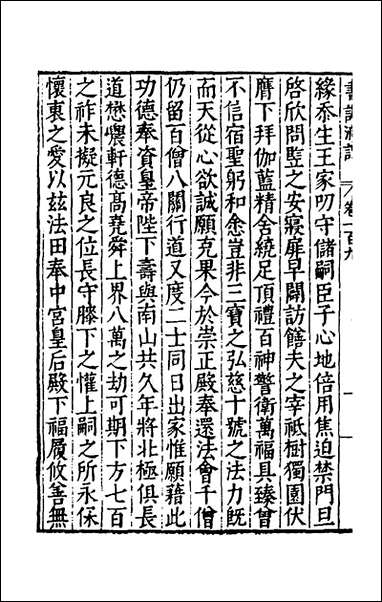 緣忝生王家叨守儲嗣臣子心地倍用焦迫禁門旦
啓欣問豎之安寢扉早闢訪饍夫之宰祇樹獨園伏
膺下拜伽藍精舍繞足頂禮百神警衛萬福具臻曾
不信宿聖躬和悆豈非三寶之弘慈十號之法力旣
而天從心欲誠願克果今於崇正殿奉還法會千僧
仍留百僧八關行道又度二士同日出家惟願藉此
功德奉資皇帝陛下壽與南山共久年將北極俱長
道懋農軒德高堯舜上界八萬之劫可期下方七百
之祚未擬元良之位長守膝下之懽上嗣之所永保
懷裏之愛以兹法田奉中宮皇后殿下福履攸善無